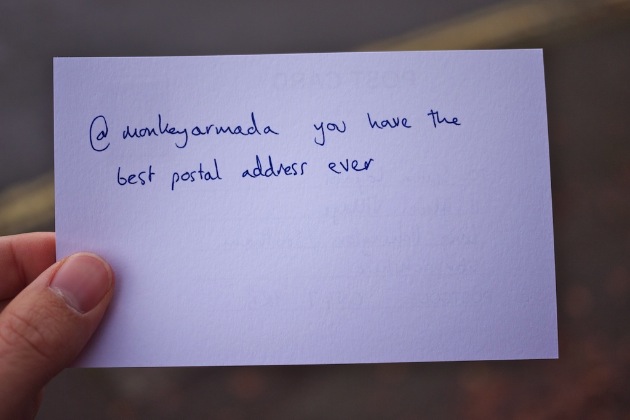 @monkeyarmada you have the
best postal address ever